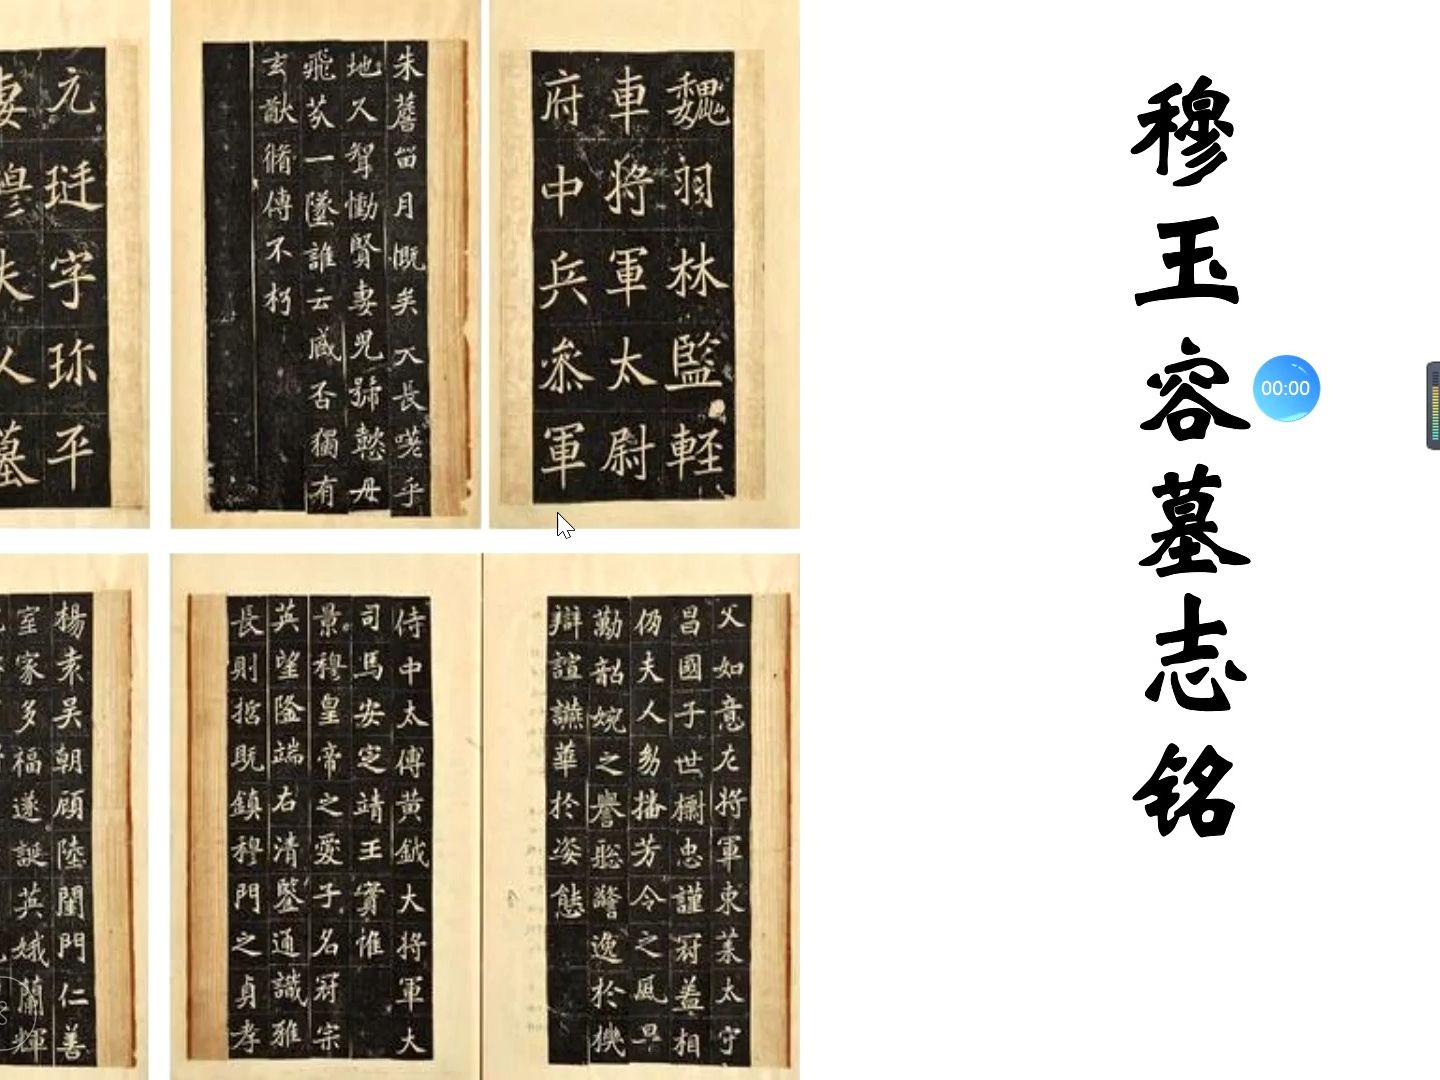 穆玉容墓志铭
00:00
魏羽林監軽
車將軍太尉
府中兵叅軍
朱蘑㽞月慨矣仌長嘆乎
地久督慟賢妻兒歸懿毋
飛芬一墜誰云臧否獨有
玄猷脩傳不朽
元珽字珎平
妻穆夫人墓
父如意左將軍東莱太守
昌國子世橱忠謹冠蓋相
仍夫人㓜播芳令之風早
勤韶婉之譽聡警逸於機
辯諠讌華於姿態
侍中太傅黄鉞大將軍大
司馬安定靖王實惟
景穆皇帝之愛子名冠宗
英望隆端右清鑒通識雅
長則哲旣鎮穆門之貞孝
楊袁吴朝顧陸閨門仁善
室家多福遂誕英娥蘭輝